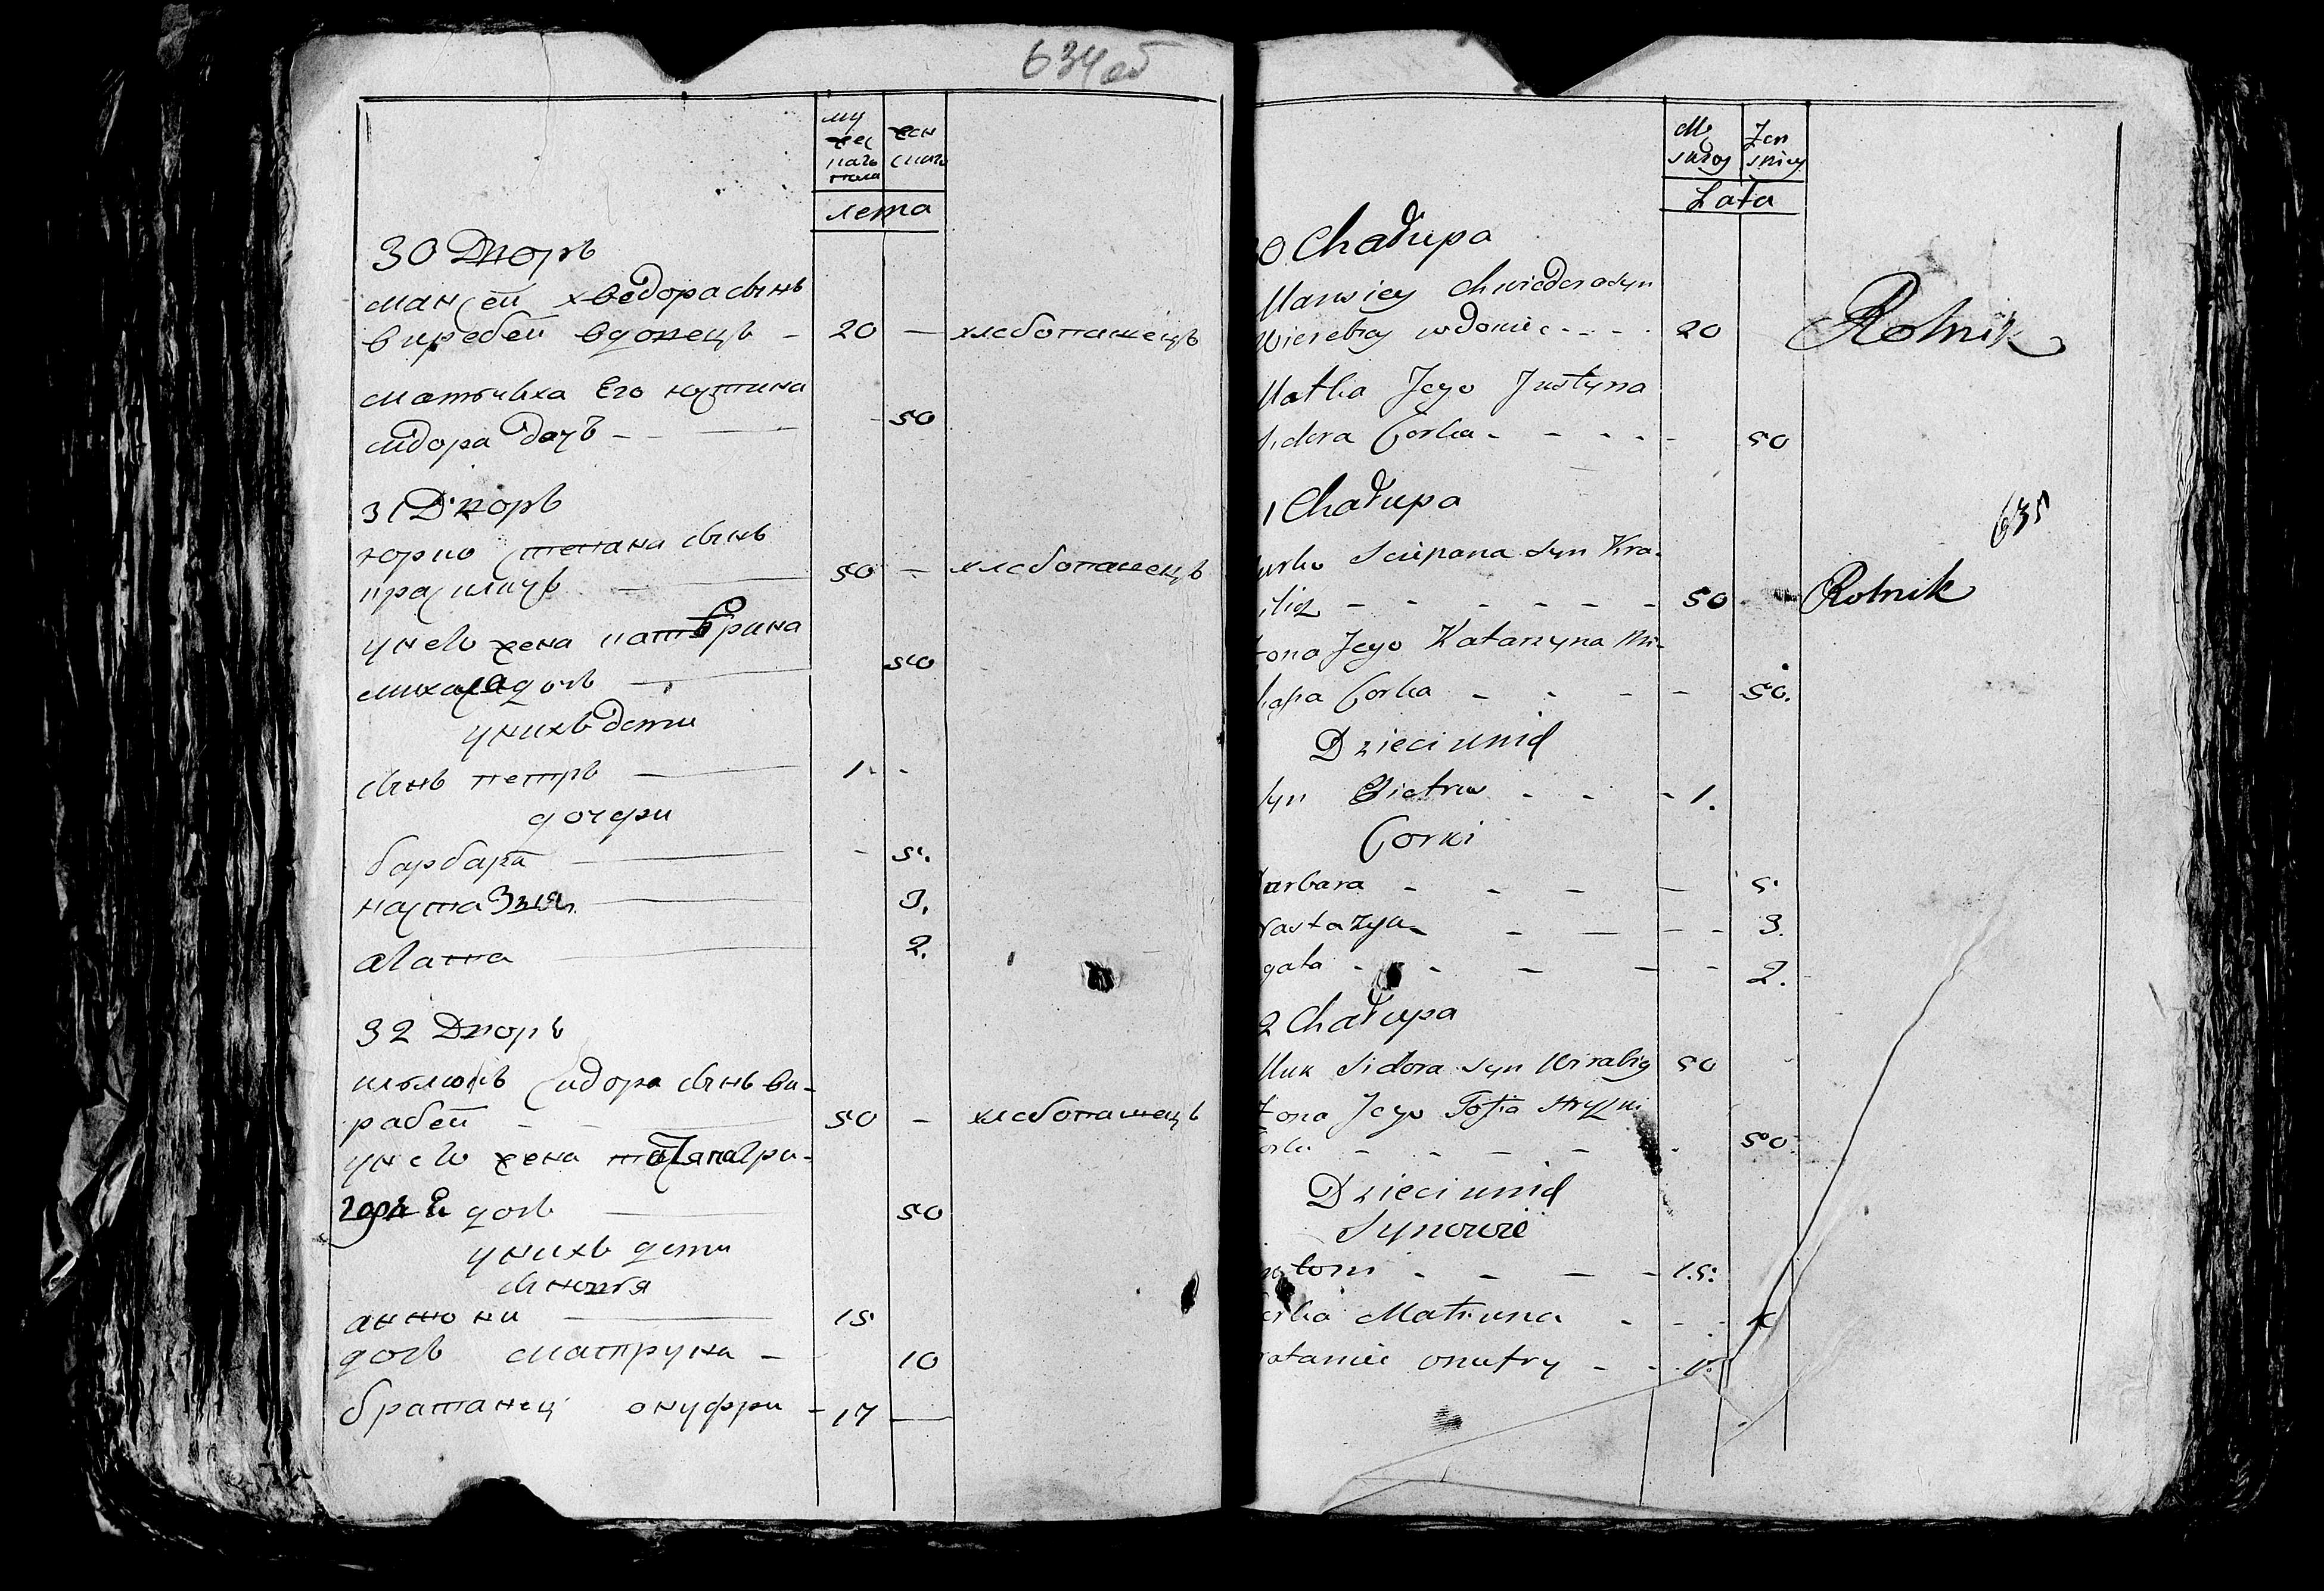 634об
му
жес
каго
пола
жен
скаго
лета
30 Дворъ
мансей хведора сынъ
виребей вдовецъ – 20 — хлебопашецъ
матъчиха Его юстина
сидора дочъ – – — 50
31 Дворъ
юрко степана сынъ
50 — хлебопашецъ
унего жена катерина
михала дочь — 50
унихъ дети
сынъ петръ — 1. -
дочери
барбара — - 5.
настазия — 3.
агата — 2.
32 Дворъ
сидора сынъ ви-
рабей – – — 50 – хлебопашецъ
унего жена гри-
дочь — 50
унихъ дети
сыновья
антони — 15
дочь матруна – 10
братанец онуфри – 17 —
M
skiey
Żen
skiey
Lata
0 Chałupa
Chwiedora syn
Wierebey wdowiec - - - 20 Rolnik
Matka Jego Justyna
Sidora Corka - - - - - 50
635
1 Chałupa
Jurko Sciepana syn Kra-
- - - - - - 50 Rolnik
Żona Jego Katarzyna Mi-
Corka - - - - 50.
Dzieci unich
Syn Piotr - - - 1.
Corki
Barbara - - - — 5.
Nastazya - — — - 3.
gata - - — — - 2.
2 Chałupa
Sidora syn Wirabiey 50
Żona Jego Zofia Hryhni
Corka - - - - - 50
Dzieci unich
Synowie
ntoni - - — - 15.
Corka Matruna - - -
rataniec onufry - -